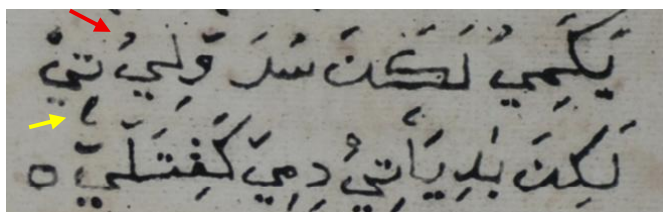 يَكَمِيُ لَكَنَ سُدَ وَّلِيُ تِيْ
لَكِنَ بَدِيَأتِيُ دِمِيَ كَفِتَلِيّ ه